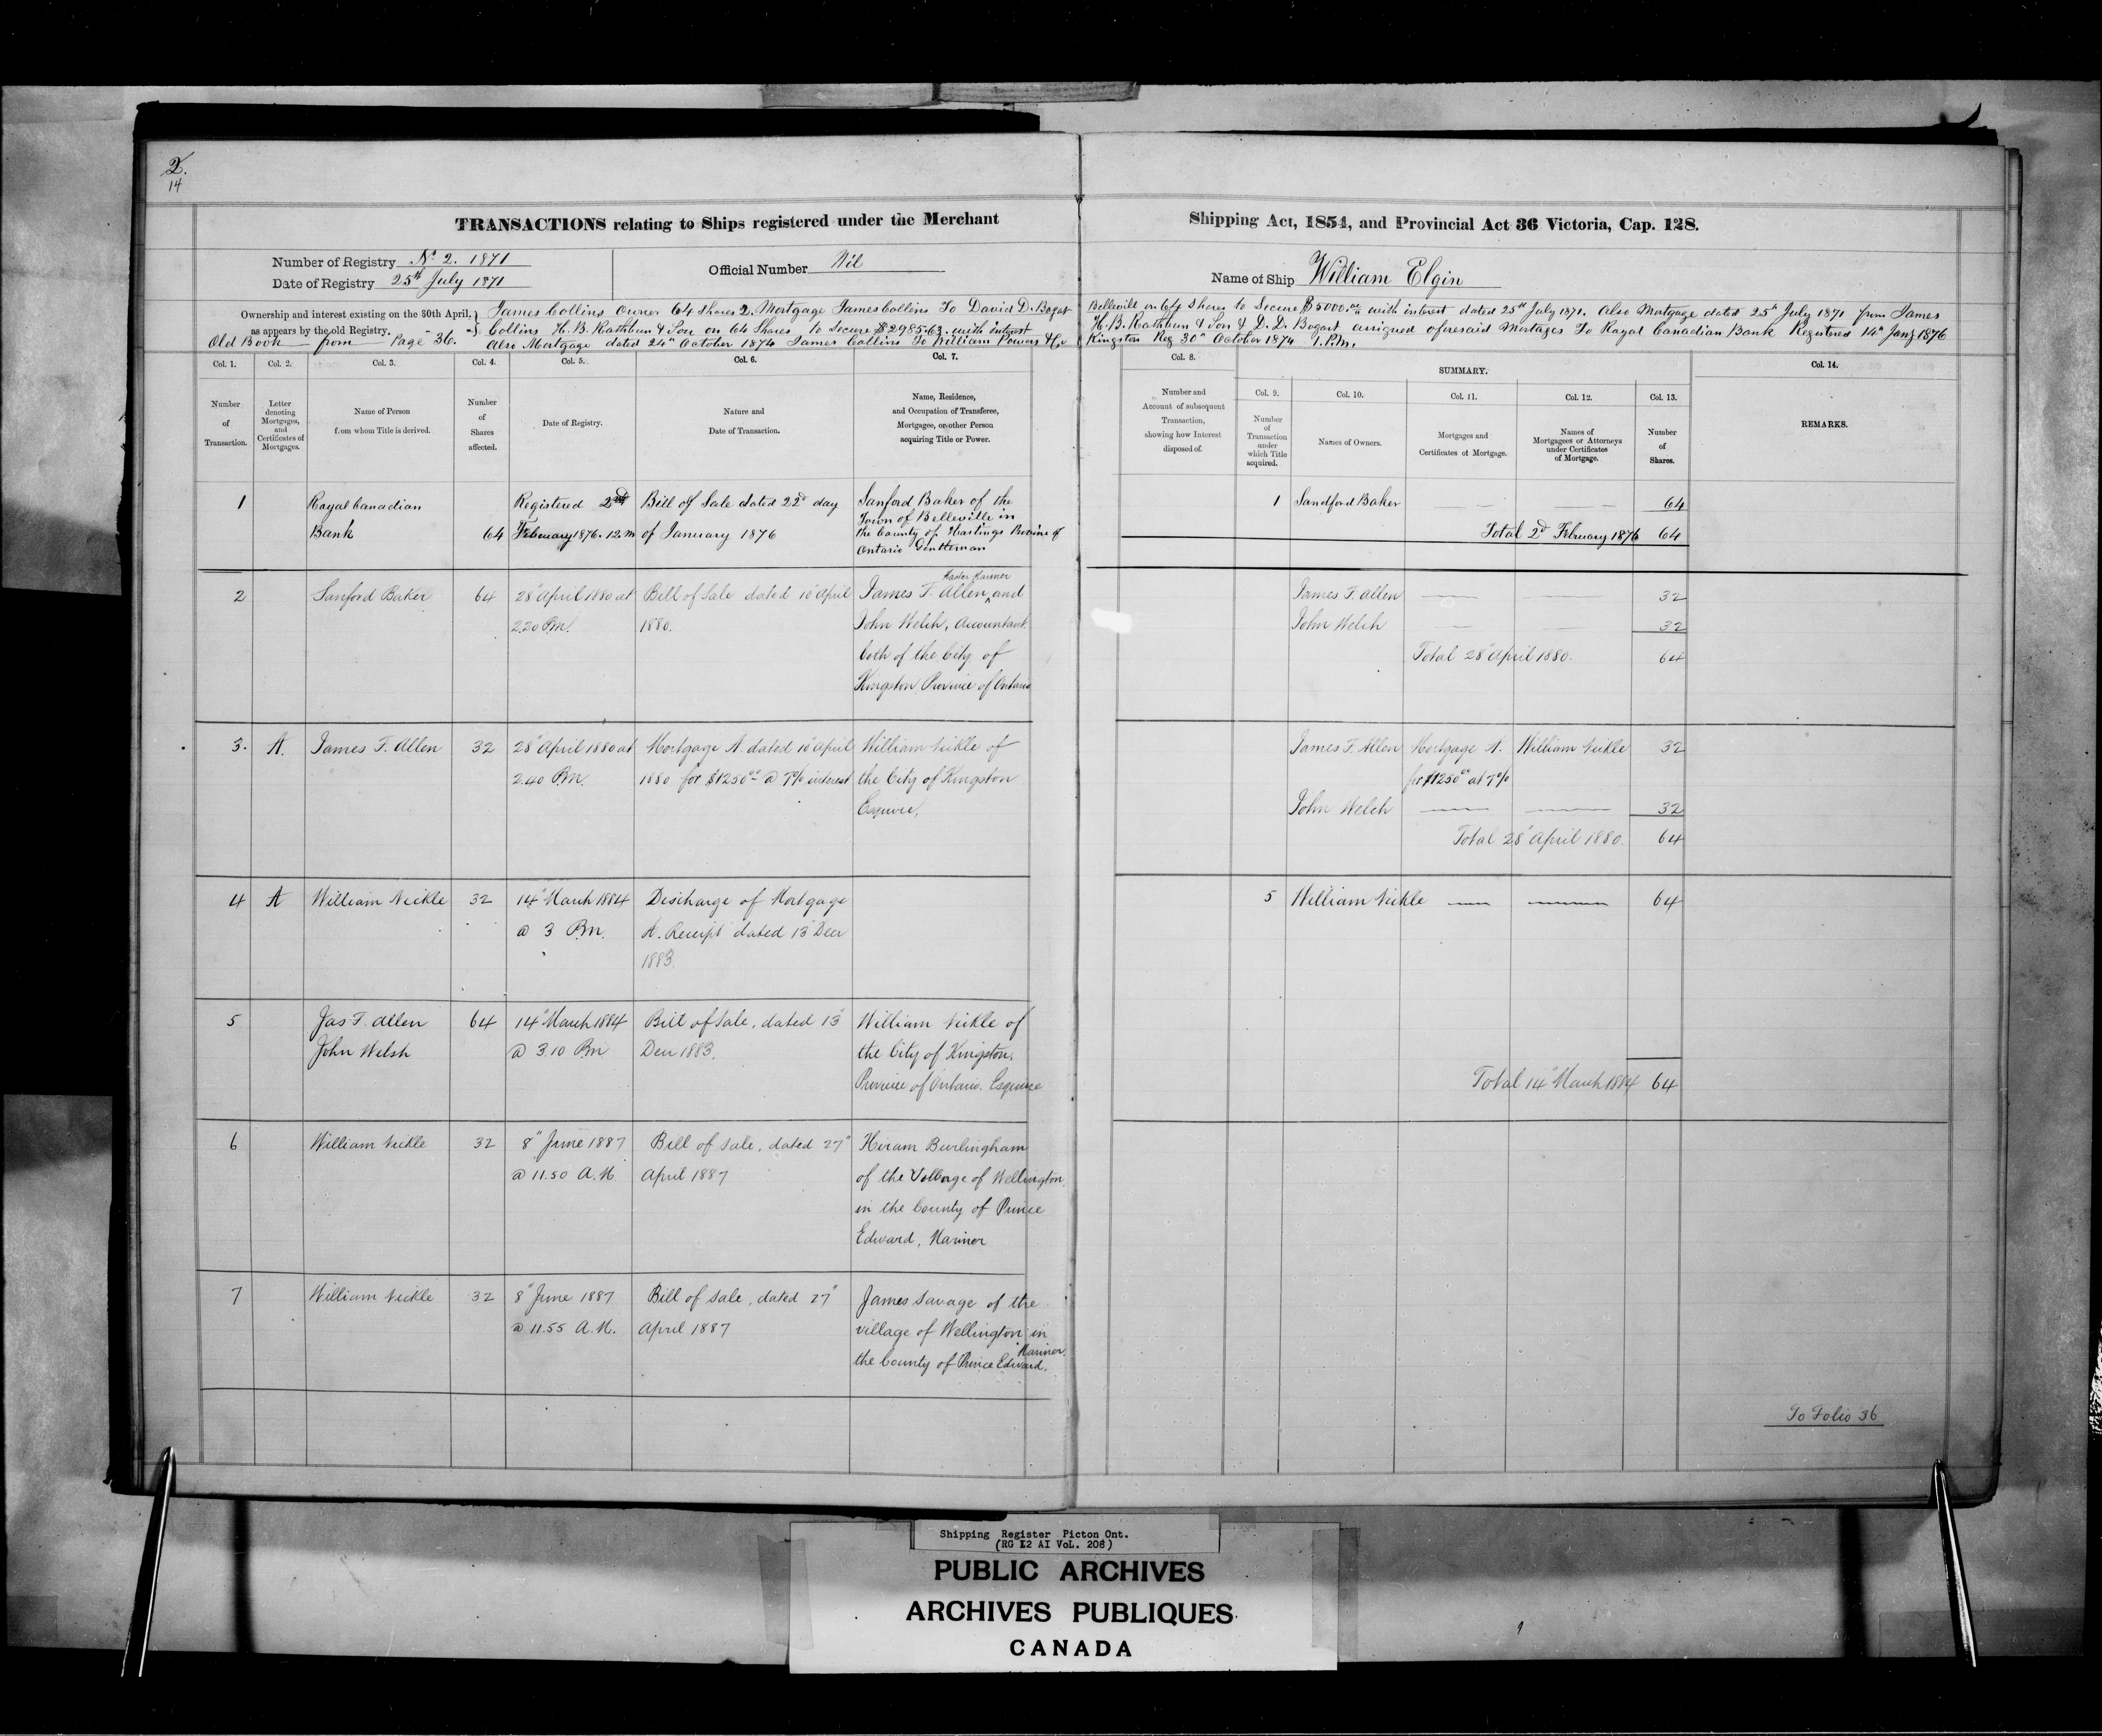 2.
14
TRANSACTIONS relating to Ships registered under the Merchant Shipping Act, 1854, and Provincial Act 36 Victoria, Cap. 128.
Number of Registry No 2. 1871
Date of Registry 25th July 1871
Official Number Nil
Name of Ship William Elgin
Ownership and interest existing on the 30th April,
as appears by the old Registry.
Old Book from Page 36.
James Collins Owner 64 Shares 2. Mortgage James Collins To David D. Bogart Belleville on 64 Shares to Secure $5000.00 with interest dated 25th July 1871. Also Mortgage dated 25th July 1871 from James
Collins H. B. Rathbun & Son on 64 Shares to Secure $2985.63. with interest H. B. Rathbun & Son & D. D. Bogart assigned aforesaid Mortages To Royal Canadian Bank Registered 14th Jany 1876
Also Mortgage dated 24th October 1874 James Collins To William Powers & Co Kingston Reg 30th October 1874 1. P.M.
Col. 1.
Number
of
Transaction.
Col. 2.
Letter
denoting
Mortgages,
and
Certificates of
Mortgages.
Col. 3.
Name of Person
from whom Title is derived.
Col. 4.
Number
of
Shares
affected.
Col. 5.
Date of Registry.
Col. 6.
Nature and
Date of Transaction.
Col. 7.
Name, Residence,
and Occupation of Transferee,
Mortgagee, or other Person
acquiring Title or Power.
Col. 8.
Number and
Account of subsequent
Transaction,
showing how Interest
disposed of.
SUMMARY.
Col. 9.
Number
of
Transaction
under
which Title
acquired.
Col. 10.
Names of Owners.
Col. 11.
Mortgages and
Certificates of Mortgage.
Col. 12.
Names of
Mortgagees or Attorneys
under Certificates
of Mortgage.
Col. 13.
Number
of
Shares.
Col. 14.
REMARKS.
1
Royal Canadian
Bank
64
Registered 2nd
February 1876. 12. M
Bill of Sale dated 22d day
of January 1876
Sanford Baker of the
Town of Belleville in
the County of Hastings Province of
Ontario Gentleman
1 Sandford Baker — — 64
Total 2d February 1876 64
2
Sanford Baker
64
28" April 1880 at
2.20 P.M.
Bill of Sale dated 10" April
1880.
Master Mariner
James F. Allen, and
John Welch, Accountant
both of the City of
Kingston Province of Ontario
James F. Allen — — 32
John Welch — — 32
Total 28" April 1880. 64
3. A.
James F. Allen
32
28" April 1880 at
2.40 P.M.
Mortgage A. dated 10" April
1880 for $1250.00 @ 7% interest
William Nickle of
the City of Kingston
Esquire,
James F. Allen Mortgage A. William Nickle 32
for $1250.00 at 7%
John Welch — — 32
Total 28" April 1880. 64
4 A
William Nickle
32
14" March 1884
@ 3 P.M.
Discharge of Mortgage
A. Receipt dated 13" Decr
1883.
5 William Nickle — — 64
5
Jas F. Allen
John Welsh
64
14" March 1884
@ 3.10 P.M
Bill of Sale, dated 13"
Decr 1883.
William Nickle of
the City of Kingston.
Province of Ontario. Esquire
Total 14" March 1884 64
6
William Nickle
32
8" June 1887
@ 11.50 A.M.
Bill of sale, dated 27"
April 1887
Hiram Burlingham
of the Village of Wellington
in the County of Prince
Edward, Mariner
7
William Nickle
32
8" June 1887
@ 11.55 A.M.
Bill of sale, dated 27"
April 1887
James Savage of the
village of Wellington in
the County of Prince Edward, Mariner.
To Folio 36
Shipping Register Picton Ont.
(RG 12 AI VoL. 208)
PUBLIC ARCHIVES
ARCHIVES PUBLIQUES
CANADA